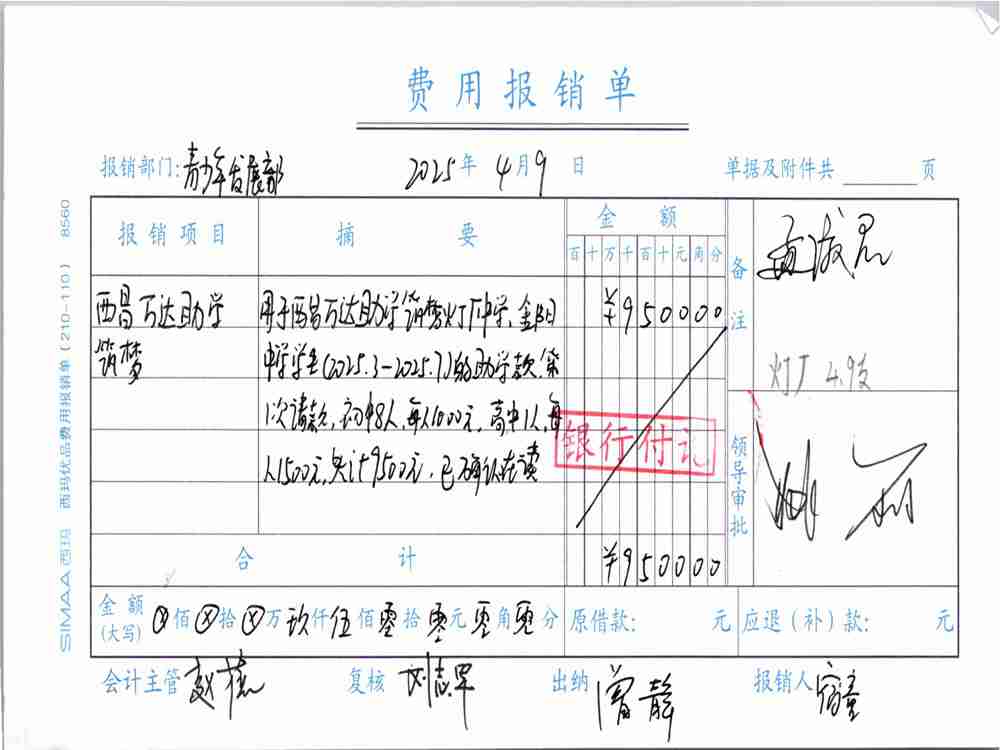 费用报销单
报销部门:青少年发展部 2025年4月9日 单据及附件共 页
SIMAA西玛 西玛优品费用报销单(210-110) 8560
报销项目 摘要 金额 备注
百十万千百十元角分
西昌万达助学 用于西昌万达助学筑梦灯厂中学、金阳 ¥950000
筑梦 中学学生(2025.3-2025.7)的助学款,第
1次请款,初中8人,每人1000元,高中1人,每
人1500元,共计9500元,已确认在读
灯厂 4.9
银行付讫
领导审批
合计 ¥950000
金额(大写) ⊗佰⊗拾⊗万玖仟伍佰零拾零元零角零分 原借款: 元 应退(补)款: 元
会计主管 复核 刘志军 出纳 曾静 报销人